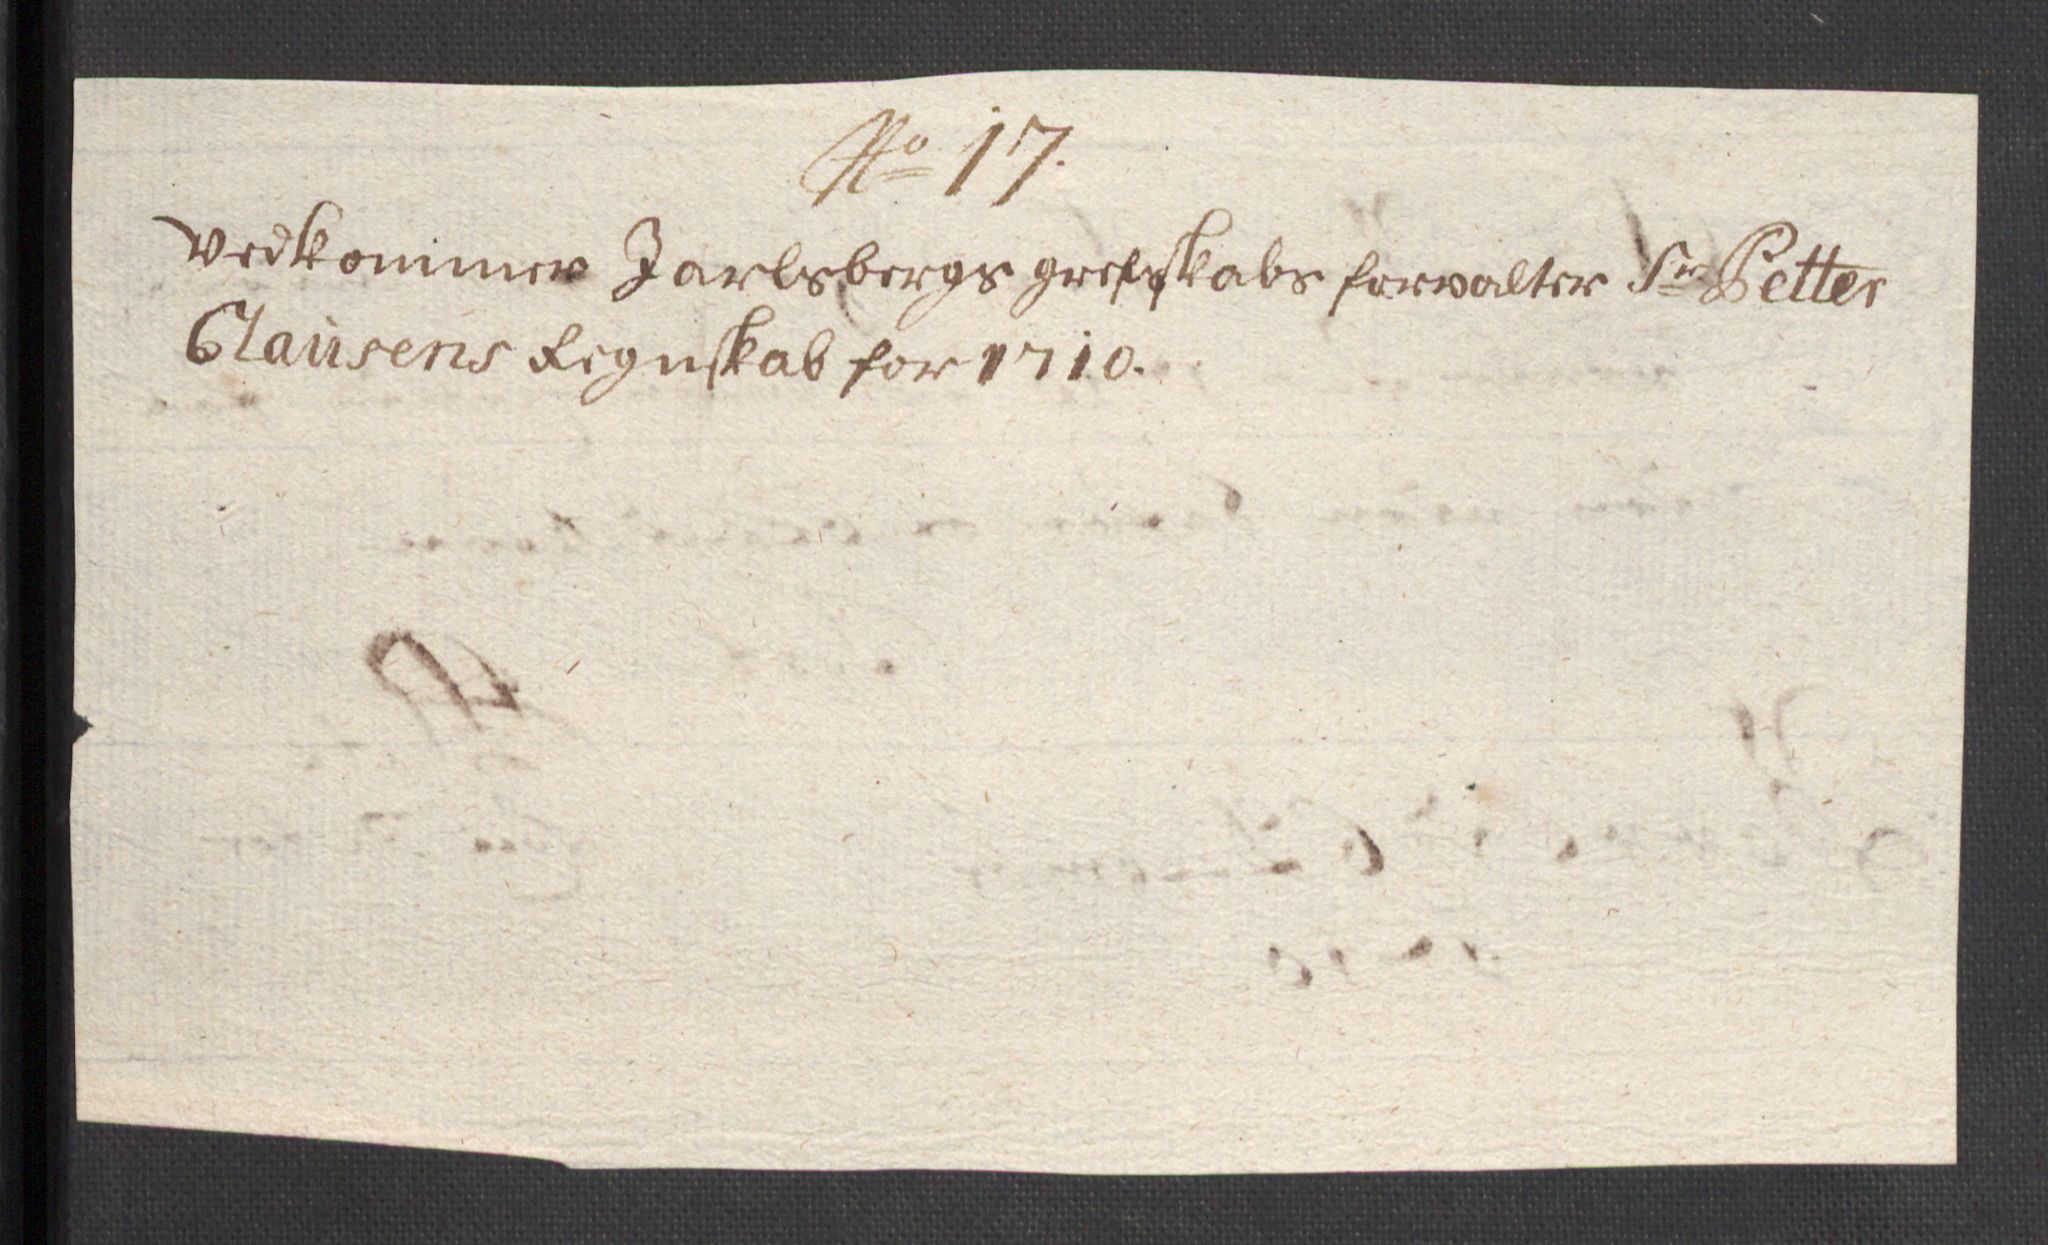 No 17.
Vedkommer Jarlsbergs grefskabs forvalter Sr Petter
Clausens Regnskab for 1710.